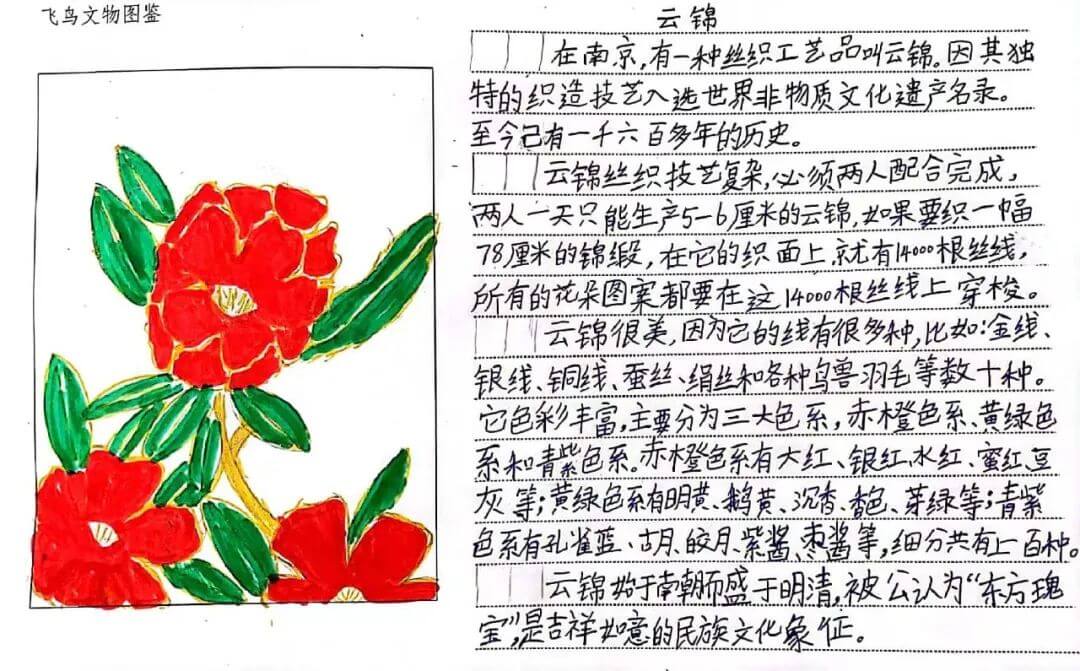 飞鸟文物图鉴
云锦
在南京,有一种丝织工艺品叫云锦。因其独
特的织造技艺入选世界非物质文化遗产名录。
至今已有一千六百多年的历史。
云锦丝织技艺复杂,必须两人配合完成,
两人一天只能生产5-6厘米的云锦,如果要织一幅
78厘米的锦缎,在它的织面上就有14000根丝线,
所有的花朵图案都要在这14000根丝线上穿梭。
云锦很美,因为它的线有很多种,比如:金线、
银线、铜线、蚕丝、绢丝和各种鸟兽羽毛等数十种。
它色彩丰富,主要分为三大色系,赤橙色系、黄绿色
系和青紫色系。赤橙色系有大红、银红、水红、蜜红、豆
灰等;黄绿色系有明黄、鹅黄、沉香、香色、芽绿等;青紫
色系有孔雀蓝、古月、皎月、紫酱、枣酱等,细分共有上百种。
云锦始于南朝而盛于明清,被公认为“东方瑰
宝”,是吉祥如意的民族文化象征。